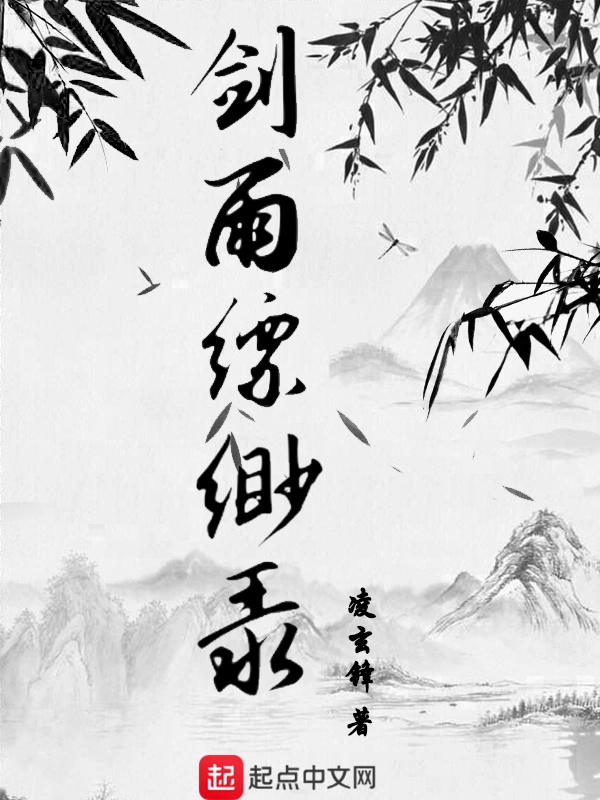 剑雨缥缈录
凌玄锋 著
起 起点中文网